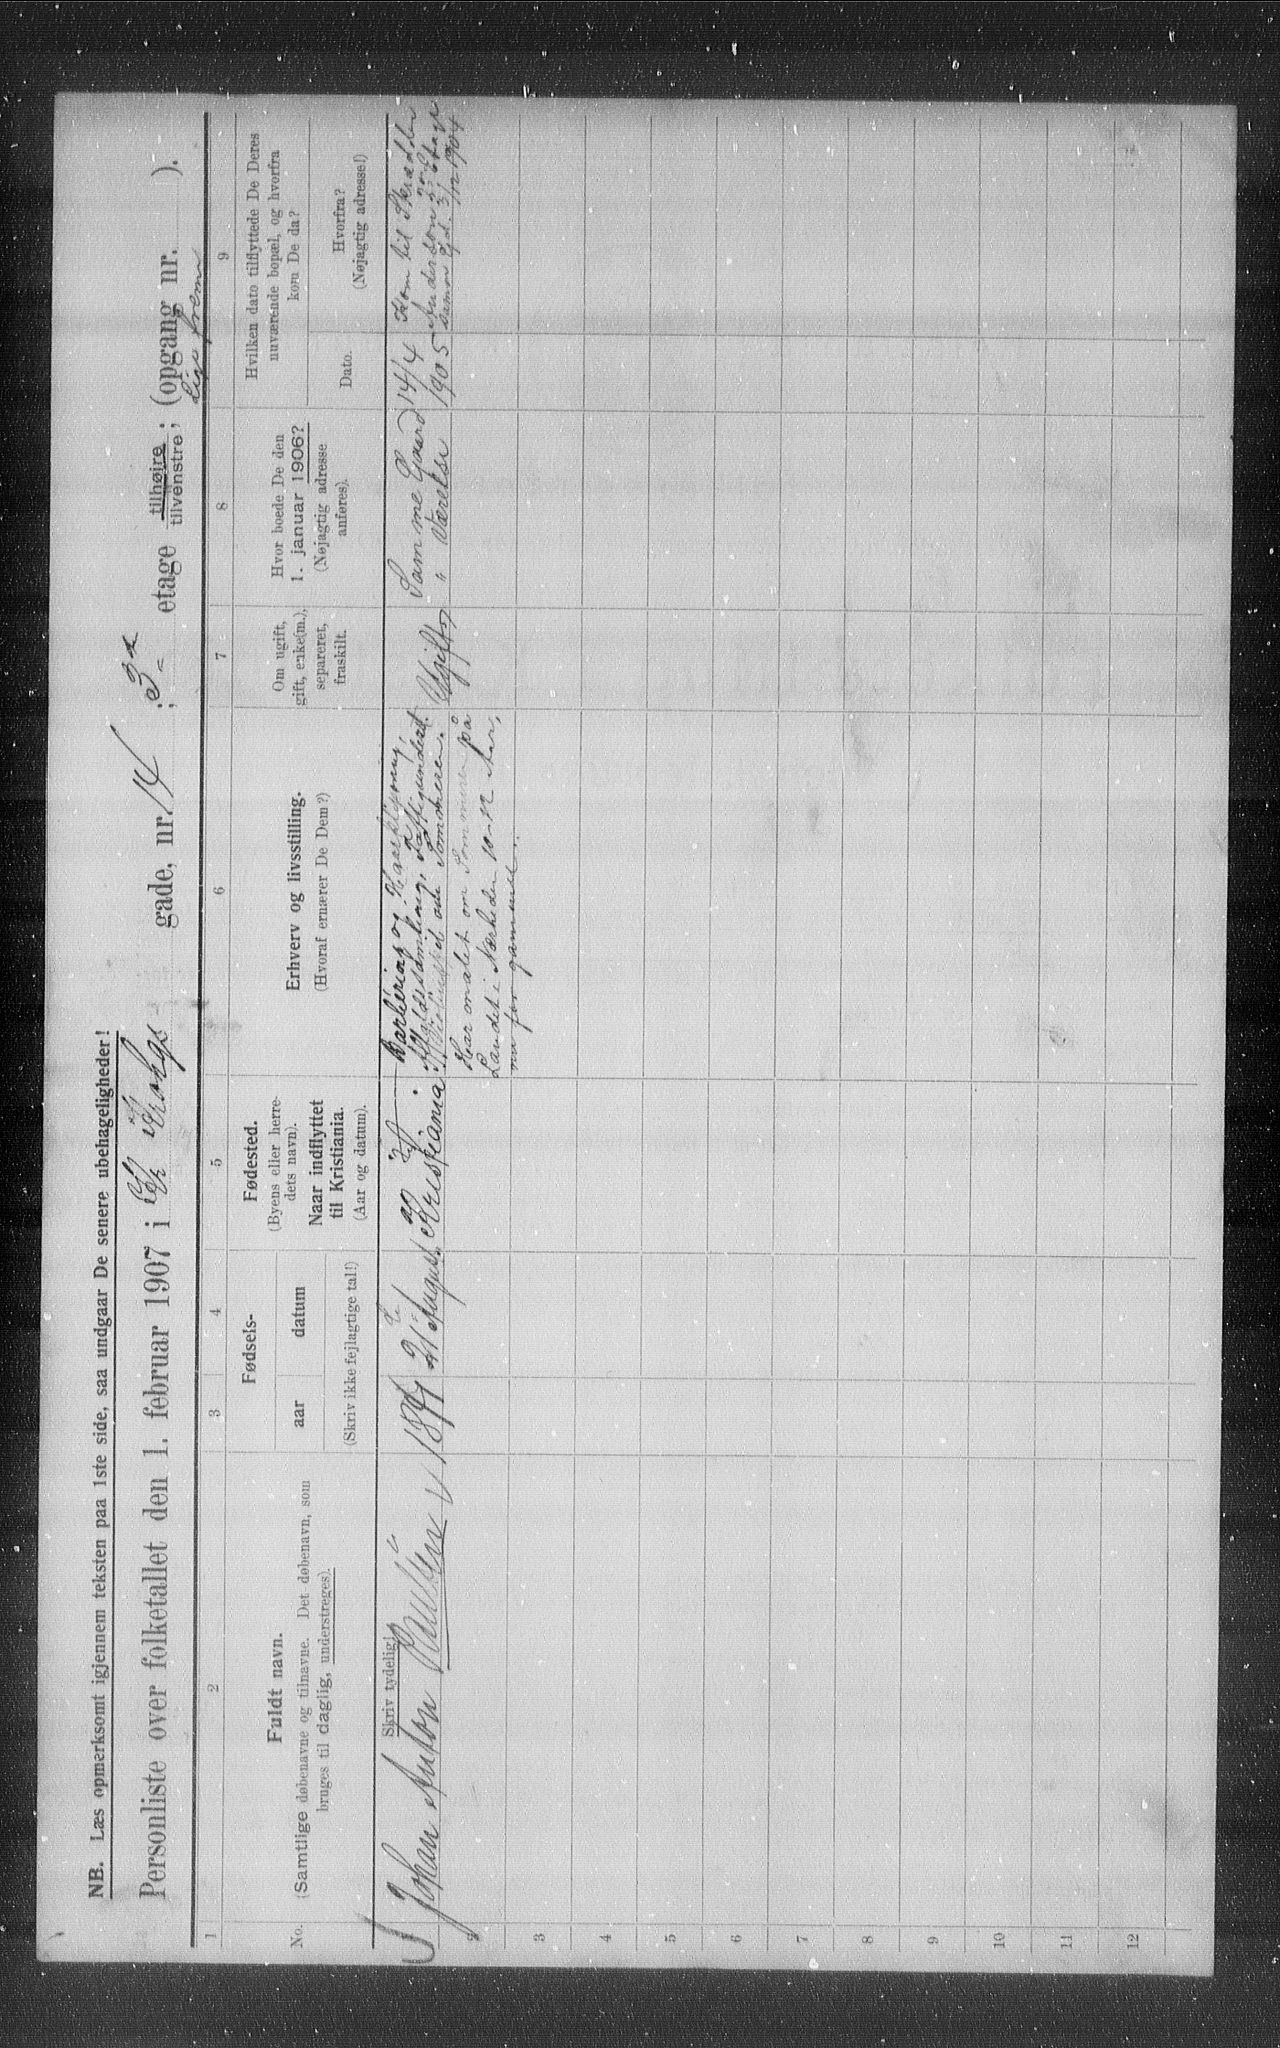 NB. Læs opmærksomt igjennem teksten paa 1ste side, saa undgaar De senere ubehageligheder!
Personliste over folketallet den 1. februar 1907 i Chr Krohgs gade, nr. 14 ; 3d etage tilhøire tilvenstre; (opgang nr. ).
lige frem
1 2 3 4 5 6 7 8 9
No.
Fuldt navn.
(Samtlige døbenavne og tilnavne. Det døbenavn, som
bruges til daglig, understreges).
Fødsels-
aar datum
(Skriv ikke fejlagtige tal!)
Fødested.
(Byens eller herre-
dets navn).
Naar indflyttet
til Kristiania.
(Aar og datum).
Erhverv og livsstilling.
(Hvoraf ernærer De Dem?)
Om ugift,
gift, enke(m.),
separeret,
fraskilt.
Hvor boede De den
1. januar 1906?
(Nøjagtig adresse
anføres).
Hvilken dato tilflyttede De Deres
nuværende bopæl, og hvorfra
kom De da?
Dato.
Hvorfra?
(Nøjagtig adresse!)
Skriv tydelig!
Johan Anton
21 August
Kristiania
Barbering og Haarklipning,
om Sommeren.
Har malet om Sommeren på
Landet i Nærheden 10-12 Aar,
for gammel.
Ugift
Samme Gaard
" Værelse
14/4
1905
Kom til Skrædder
Anderson
1904
2
3
4
5
6
7
8
9
10
11
12